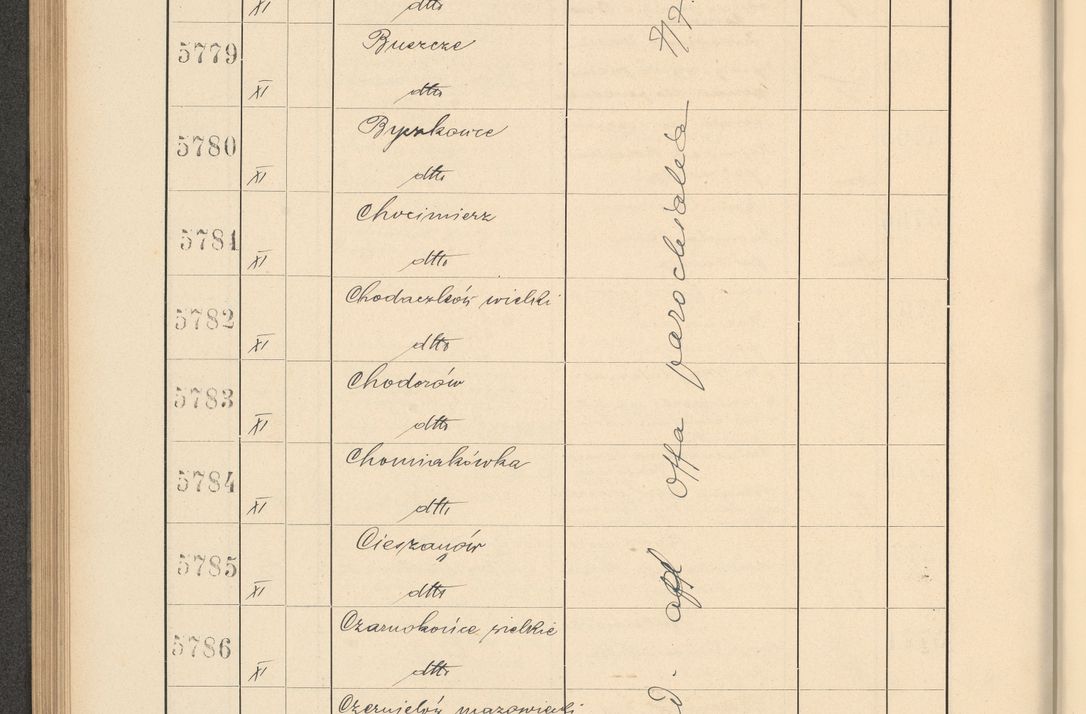 XI dtto
5779 Buszcze
XI dtto
5780 Byszkowce
XI dtto
5781 Chocimierz
XI dtto
5782 Chodaczków wielki
XI dtto
5783 Chodorów
XI dtto
5784 Chomiakówka
XI dtto
5785 Cieszanów
XI dtto
5786 Czarnokońce wielkie
XI dtto
Czernielów mazowiecki
offa parochialia